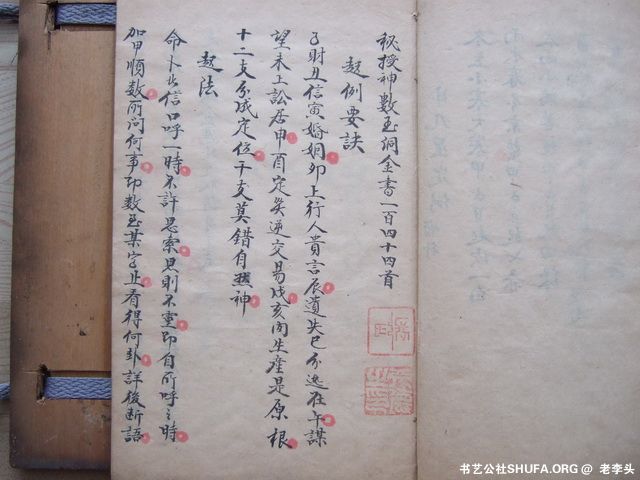 秘授神数玉洞金书一百四十四首
起例要訣
子財丑信寅婚姻卯上行人貴言辰遺失巳分逃在午謀
望未上訟居申酉定矣逆交易戌亥問生産是原根
十二支分成定位干支莫錯自然神
起法
命卜者信口呼一時不許思索思則不灵即自所呼之時
加甲順数所问何事即数至某宮止看得何卦詳後断語
书艺公社SHUFA.ORG @ 老李头